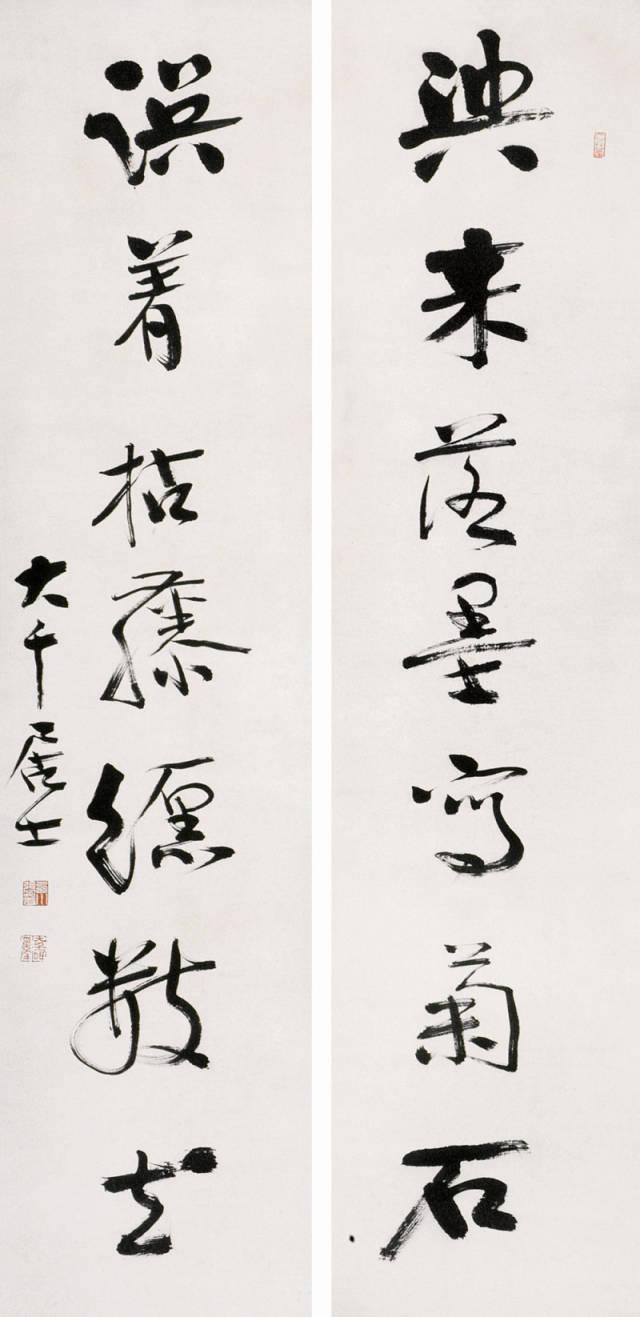 興来落墨寫菊石
誤着枯藤纏數
大千居士